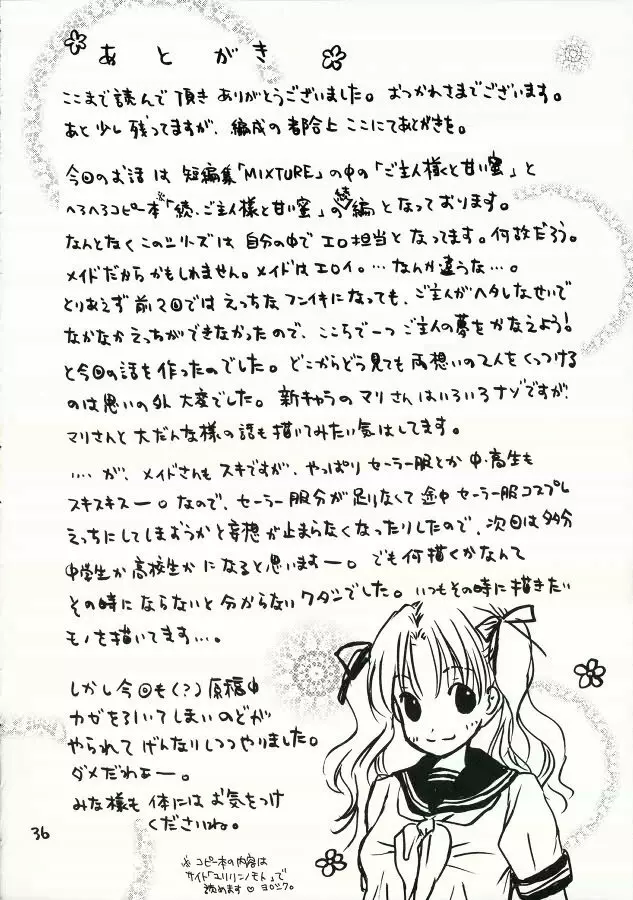 あとがき
ここまで読んで頂きありがとうございました。おつかれさまでございます。
あと少し残ってますが、編成の都合上ここにてあとがきを。
今回のお話は短編集「MIXTURE」の中の「ご主人様と甘い蜜」と
へろへろコピー本※「続・ご主人様と甘い蜜」の続編となっております。
なんとなくこのシリーズは自分の中でエロ担当となってます。何故だろう。
メイドだからかもしれません。メイドはエロイ。…なんか違うな…。
とりあえず前2回ではえっちなフンイキになっても、ご主人がヘタレなせいで
なかなかえっちができなかったので、ここらで一つご主人の夢をかなえよう!
と今回の話を作ったのでした。どこからどう見ても両想いの2人をくっつける
のは思いの外大変でした。新キャラのマリさんはいろいろナゾですが、
マリさんと大だんな様の話も描いてみたい気はしてます。
….が、メイドさんもスキですが、やっぱりセーラー服とか中・高生も
スキスキスー。なので、セーラー服分が足りなくて途中セーラー服コスプレ
えっちにしてしまおうかと妄想が止まらなくなったりしたので、次回は多分
中学生か高校生かになると思いますー。でも何描くかなんて
その時にならないと分からないワタシでした。いつもその時に描きたい
モノを描いてます…。
しかし今回も(?)原稿中
カゼを引いてしまいのどが
やられてげんなりしつつやりました。
ダメだわぁー。
みな様も体にはお気をつけ
くださいね。
※コピー本の内容は
サイト「ユリリンノモト」で
読めます♡ヨロシク。
36